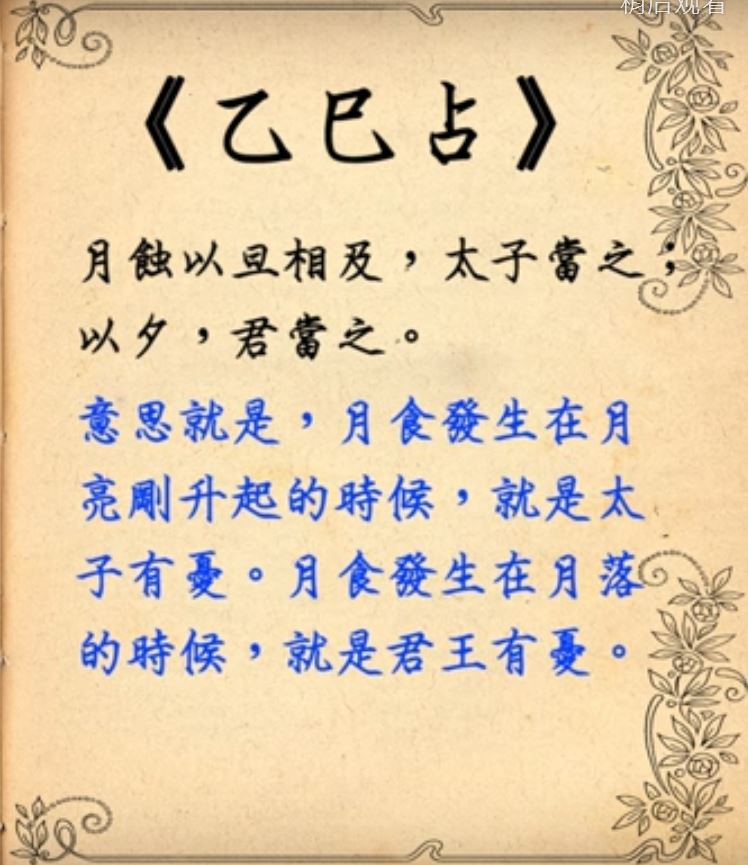 稍后观看
《乙巳占》
月蝕以旦相及，太子當之；
以夕，君當之。
意思就是，月食發生在月
亮剛升起的時候，就是太
子有憂。月食發生在月落
的時候，就是君王有憂。